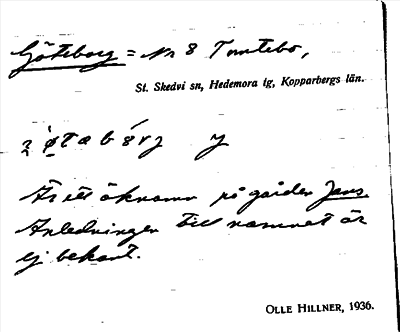 Göteborg = Nr 8 Tomtebo,
St. Skedvi sn, Hedemora tg, Kopparbergs län.
Är ett öknamn på gården Jans
Anledningen till namnet är
ej bekant.
OLLE HILLNER, 1936.